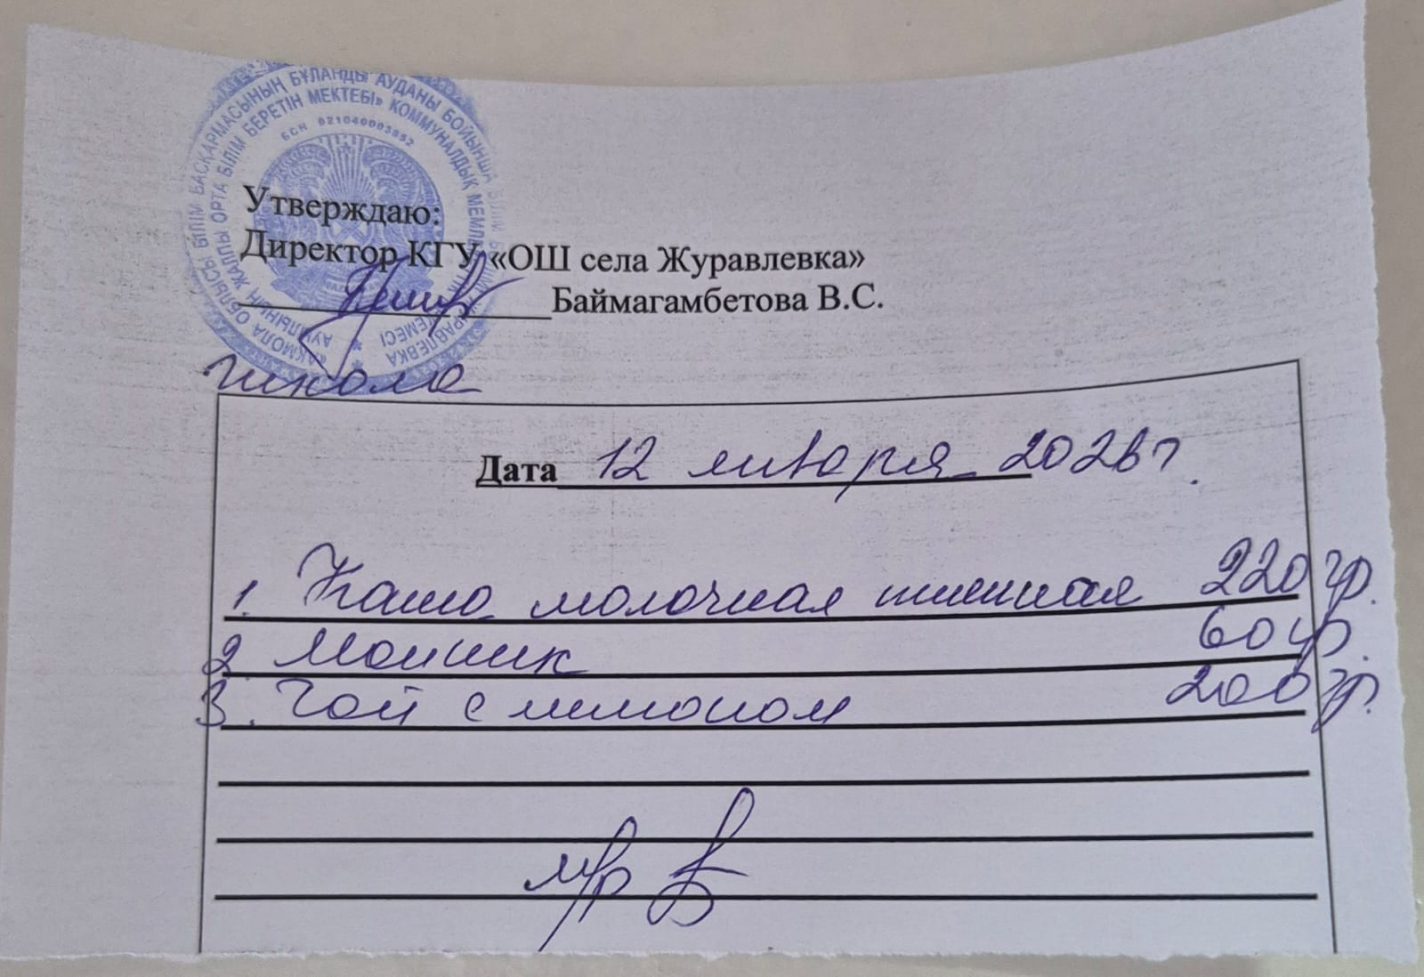 АҚМОЛА ОБЛЫСЫ БІЛІМ БАСҚАРМАСЫНЫҢ БҰЛАНДЫ АУДАНЫ БОЙЫНША БІЛІМ
ЖУРАВЛЕВКА АУЫЛЫНЫҢ ЖАЛПЫ ОРТА БІЛІМ БЕРЕТІН МЕКТЕБІ» КОММУНАЛДЫҚ МЕМЛЕКЕТТІК МЕКЕМЕСІ
БСН 021040003852
Утверждаю:
Директор КГУ «ОШ села Журавлевка»
Баймагамбетова В.С.
школа
Дата 12 января 2026 г.
1. Каша молочная пшенная 220 гр.
2. Машик 60 гр.
3. Чай с лимоном 200 гр.
м/р